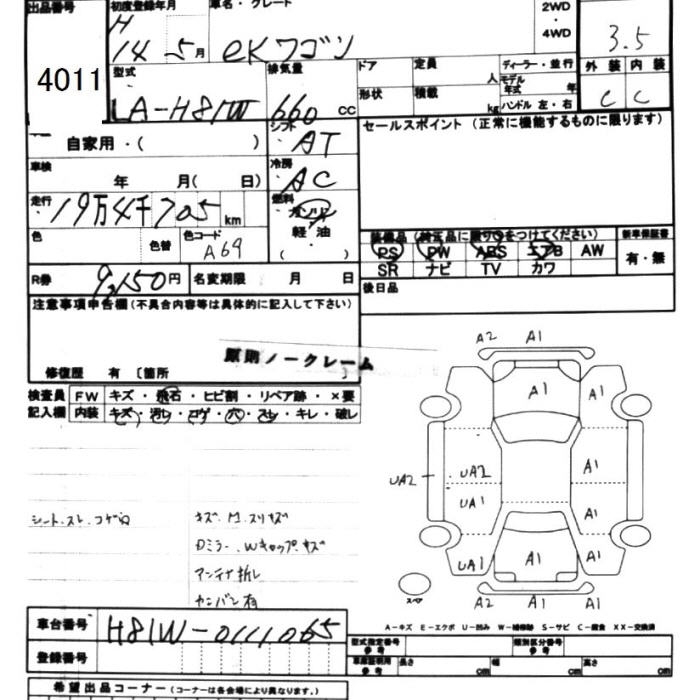 出品番号 初度登録年月 車名・グレード 2WD ・ 4WD
4011 H 14 5月 eKワゴン 3.5
型式 排気量 ドア 定員 人 ディーラー・並行 外装 内装
モデル年式 年
LA-H81W 660 cc 形状 積載 kg ハンドル 左・右 C C
自家用・( ) シフト AT セールスポイント (正常に機能するものに限ります)
車検 年 月( 日) 冷房 AC
走行 19万4千705 km 燃料 ガソリン
軽油
( )
色 色替 色コード A69
装備品 (純正品に限り○をつけてください) 新車保証書
PS PW ABS エアB AW 有・無
SR ナビ TV カワ
R券 9,150円 名変期限 月 日 後日品
注意事項申告欄 (不具合内容等は具体的に記入して下さい)
原則ノークレーム
修復歴 有 〔箇所
検査員 FW キズ・飛石・ヒビ割・リペア跡・×要
記入欄 内装 キズ・汚レ・コゲ・穴・スレ・キレ・破レ
A2 A1
A1 A1
UA2 UA2 A1
UA1 A1
UA1 A1 A1
スペア A2 A1 A1
シート、スレ、コゲ穴 キズ、M、スリキズ
Dミラー、Wキャップ、キズ
アンテナ折レ
ヤンバン有
A-キズ E-エクボ U-凹み W-補修跡 S-サビ C-腐食 XX-交換済
車台番号 H81W-0111065
型式指定番号 参考 類別区分番号 参考
登録番号 車庫証明用 参考 長さ cm 幅 cm 高さ cm
希望出品コーナー (コーナーは各会場により異なります。)